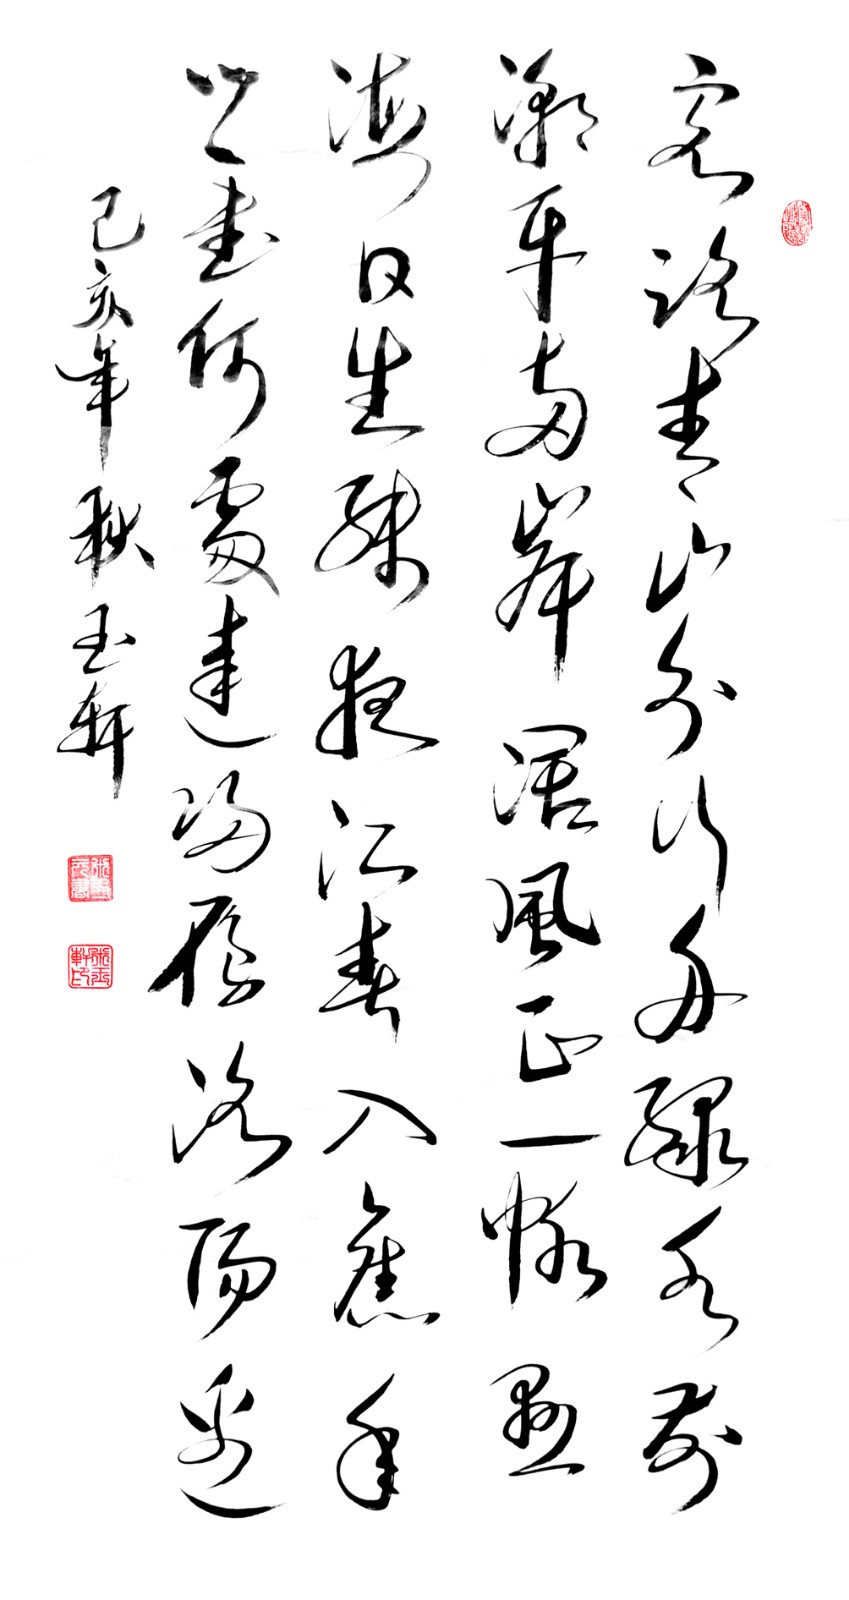 客路青山外行舟綠水前
潮平兩岸闊風正一帆懸
海日生殘夜江春入舊年
鄉書何處達歸雁洛陽邊
己亥年秋玉軒
張玉軒印